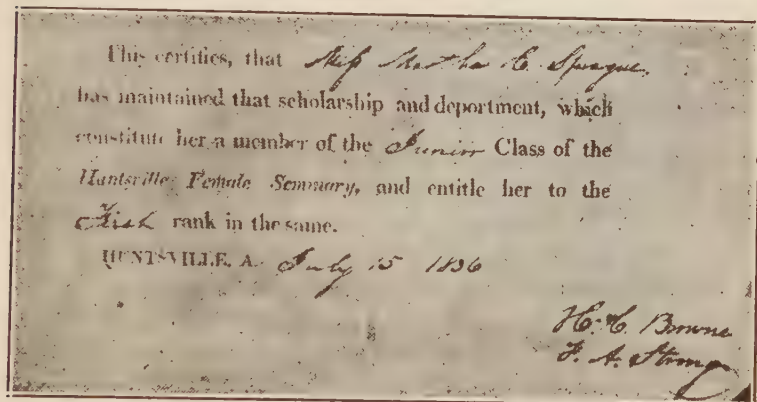 This certifies, that Miss Martha C. Sprague,
has maintained that scholarship and deportment, which
constitute her a member of the Junior Class of the
Huntsville, Female Seminary, and entitle her to the
First rank in the same.
HUNTSVILLE, A. July 15 1836
H. C. Browne
F. A. Strong